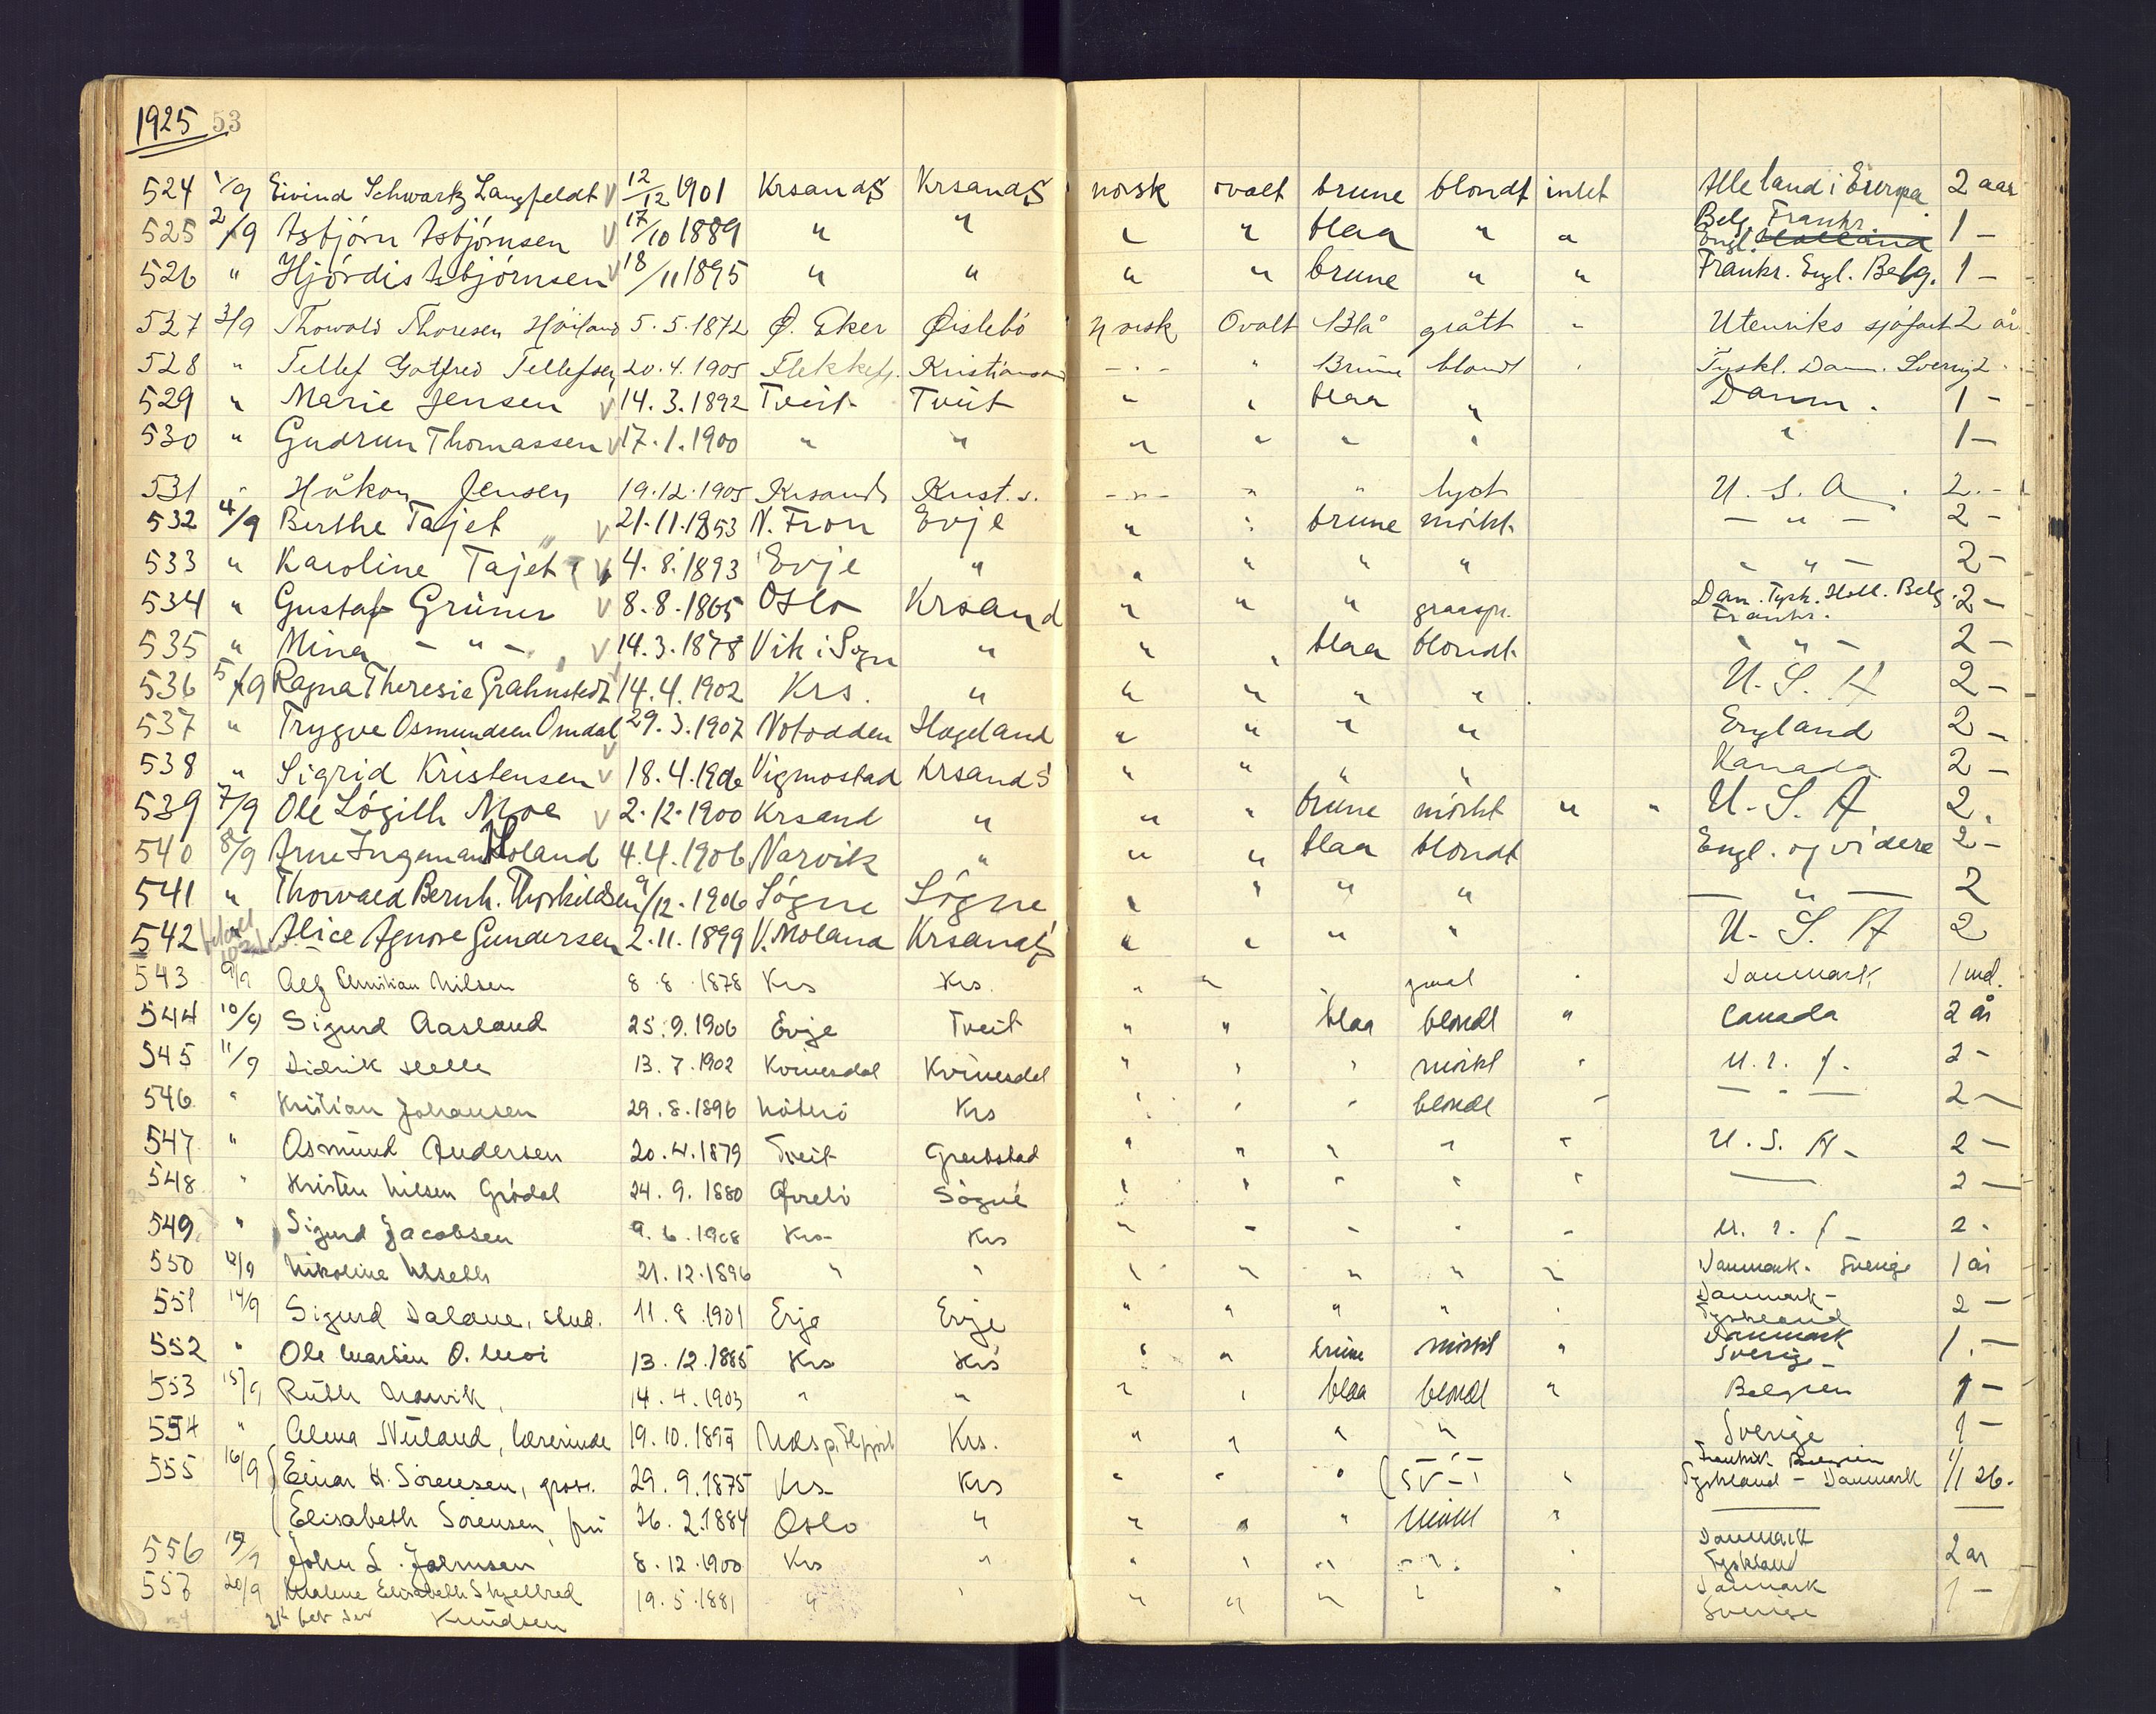 1925 53
524 1/9 Eivind Schwartz Langfeldt V 12/12 1901 KrsandS KrsandS norsk ovalt brune blondt intet Alle land i Europa 2 aar
525 2/9 Asbjörn Asbjörnsen V 17/10 1889 " " " " blaa " " Belg. Frankr. Engl. Holland 1 -
526 " Hjördis Asbjörnsen V 18/11 1895 " " " " brune " " Frankr. Engl. Belg. 1 -
527 3/9 Thorvald Thoresen Höiland 5.5.1872 Ø. Eker Øislebö Norsk Ovalt Blå grått - Utenriks sjöfart 2 år
528 " Tellef Gotfred Tellefsen 20.4.1905 Flekkefj. Kristiansand - " - " Brune blondt Tyskl. Danm. Sverig 2 -
529 " Marie Jensen V 14.3.1892 Tveit Tveit " " blaa " Danm. 1 -
530 " Gudrun Thomassen V 17.1.1900 " " " " " " " 1 -
531 " Håkon Jensen 19.12.1905 Krsands Krist.s. - " - " " lyst U.S.A. 2 -
532 4/9 Berthe Tajet V 21.11.1853 N. Fron Evje " " brune mörkt - " - 2 -
533 " Karoline Tajet V 4.8.1893 Evje " " " " " - " - 2 -
534 " Gustaf Grüner V 8.8.1865 Oslo Krsand " " " graaspr. Dan. Tysk. Holl. Belg. Frankr. 2 -
535 " Mina - " - V 14.3.1878 Vik i Sogn " " " blaa blondt - " - 2 -
536 5/9 Ragna Theresie Grahnstedt 14.4.1902 Krs. " " " " " U.S.A 2 -
537 " Trygve Osmundsen Omdal 29.3.1907 Notodden Hægeland " " " " England 2 -
538 " Sigrid Kristensen V 18.4.1906 Vigmostad KrsandS " " " " Kanada 2 -
539 7/9 Ole Lögith Moe V 2.12.1900 Krsand " " " brune mörkt " " U.S.A 2.
540 8/9 Arne Ingeman Holand 4.4.1906 Narvik " " " blaa blondt Engl. og videre 2 -
541 " Thorvald Bernh. Thorkildsen 9/12.1906 Sögne Sögne " " " " - " - 2
542 Alice Agnore Gundersen 2.11.1899 V. Moland KrsandS " " " " U.S.A 2
543 9/9 Alf Christian Nilsen 8.8.1878 Krs Krs. " " " Danmark 1 md.
544 10/9 Sigurd Aasland 25.9.1906 Evje Tveit " " blaa blondt " Canada 2 år
545 11/9 Didrik Helle 13.7.1902 Kvinesdal Kvinesdal " " " mörkt " U.S.A. 2 -
546 " Kristian Johansen 29.8.1896 Nöterö Krs " " " blondt " - " - 2 -
547 " Osmund Andersen 20.4.1879 Tveit Greibstad " " " " " U.S.A - 2 -
548 " Kristen Nilsen Grödal 24.9.1880 Øvrebö Sögne " " " " " - 2 -
549 " Sigurd Jacobsen 9.6.1908 Krs Krs " " " " " U.S.A - 2 -
550 12/9 Nikoline 21.12.1896 " " " " " " " Danmark - Sverige 1 år
551 14/9 Sigurd Dalane, stud. 11.8.1901 Evje Evje " " " " " Danmark - Tyskland 2 -
552 " Ole Martin O. Moi 13.12.1885 Krs Krs " " brune mörkt " Danmark Sverige - 1. -
553 15/9 Ruth 14.4.1903 " " " " blaa blondt " Belgien 1 -
554 " Alma Neuland, lærerinde 19.10.189 Krs. " " " " Sverige 1 -
555 16/9 Einar H. Sörensen, gross. 29.9.1875 Krs Krs " " " " Frankrik Belgien Tyskland - Danmark 1/1 26.
Elisabeth Sörensen, fru 26.2.1884 Oslo " " " " mörkt "
556 John S. 8.12.1900 Krs " " " " - " - " Danmark Tyskland 2 år
557 20/9 Malene Elisabeth Skjellred 19.5.1881 " " " " " " " Danmark Sverige 1 -
Knudsen